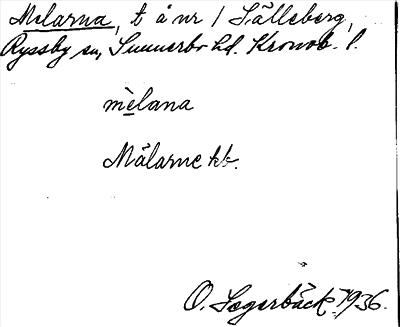 Melarna, t å nr 1 Sälleberg,
Ryssby sn, Sunnerbo hd. Kronob. l.
mèlana
Mälarne hb.
O. Sagerbäck 1936.